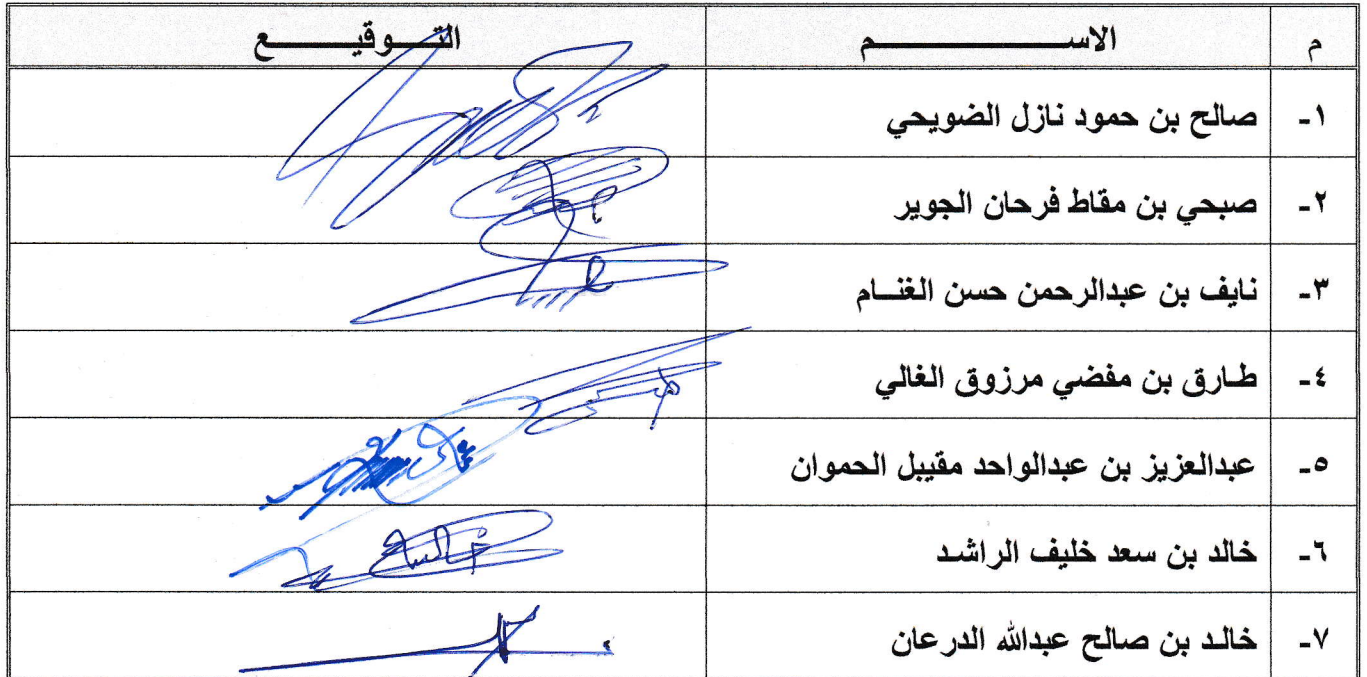 م الاســـــم التـــوقيـــع
١- صالح بن حمود نازل الضويحي
٢- صبحي بن مقاط فرحان الجوير
٣- نايف بن عبدالرحمن حسن الغنــام
٤- طـارق بن مفضي مرزوق الغالي
٥- عبدالعزيز بن عبدالواحد مقيبل الحموان
٦- خالد بن سعد خليف الراشـد
٧- خالـد بن صالح عبدالله الدرعان